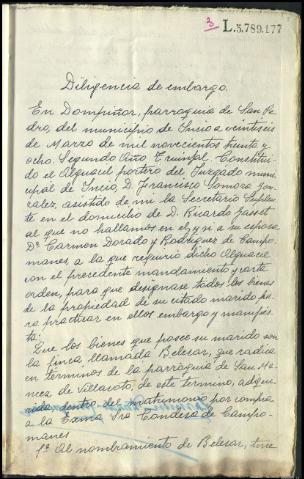 3 L.5.789.177
Diligencia de embargo.
En Dompiñor, parroquia de San Pe-
dro, del municipio de Incio a veintiseis
de Marzo de mil novecientos treinta y
ocho. Segundo Año Triunfal. Constitui-
do el Alguacil portero del Juzgado muni-
cipal de Incio, D. Francisco Somoza Gon-
zalez, asistido de mi la Secretario Suplen-
te en el domicilio de D. Ricardo Gasset
al que no hallamos en el, y si a su esposa
Dª Carmen Dorado y Rodriguez de Campo-
manes a la que requirió dicho Alguacil
con el precedente mandamiento y carta
orden, para que designase todos los bienes
de la propiedad de su citado marido pa-
ra practicar en ellos embargo y manifes-
ta:
Que los bienes que posee su marido son
la finca llamada Belesar, que radica
en términos de la parroquia de San Ma-
med de Villasoto, de este término, adqui-
rida dentro del matrimonio por compra
a la Exma Sra Condesa de Campo-
manes
1º Al nombramiento de Belesar, trece